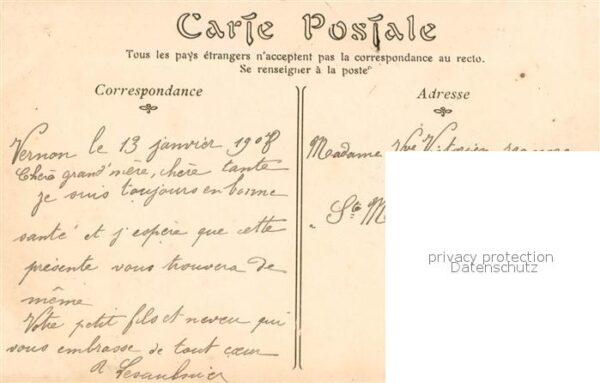 Carte Postale
Tous les pays étrangers n'acceptent pas la correspondance au recto.
Se renseigner à la poste
Correspondance
Vernon le 13 janvier 1908
Chère grand'mère, chère tante
je suis toujours en bonne
santé et j'espère que cette
présente vous trouvera de
même
Votre petit fils et neveu qui
vous embrasse de tout cœur
Adresse
Madame Vve
Ste M
privacy protection
Datenschutz